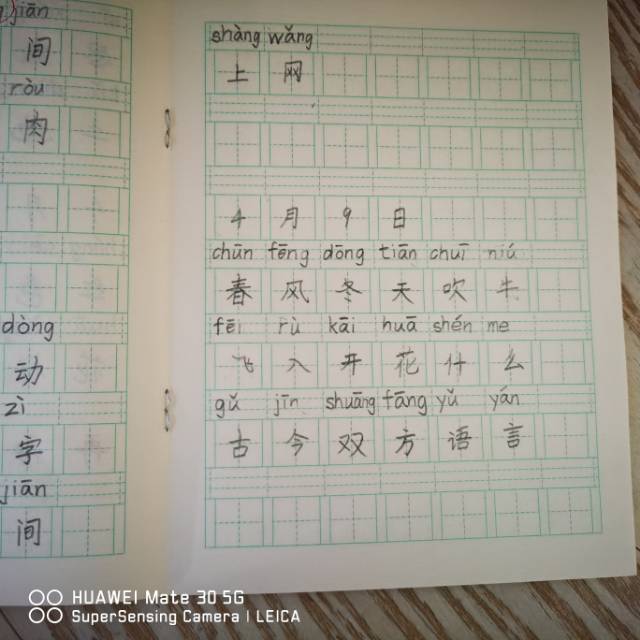 jiān
间
ròu
肉
dòng
动
zì
字
jiān
间
shàng wǎng
上 网
4 月 9 日
chūn fēng dōng tiān chuī niú
春 风 冬 天 吹 牛
fēi rù kāi huā shén me
飞 入 开 花 什 么
gǔ jīn shuāng fāng yǔ yán
古 今 双 方 语 言
HUAWEI Mate 30 5G
SuperSensing Camera | LEICA